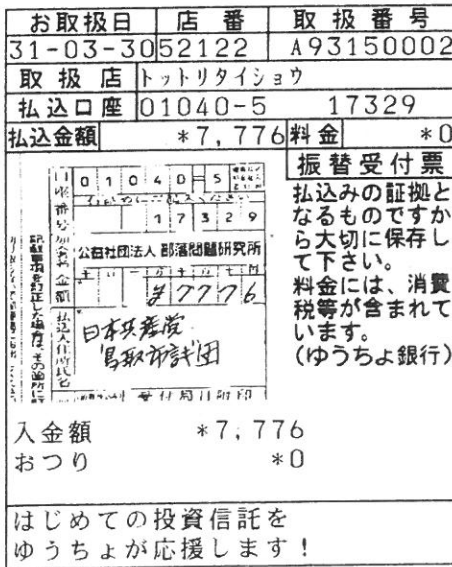 お取扱日 店番 取扱番号
31-03-30 52122 A93150002
取扱店 トットリタイショウ
払込口座 01040-5 17329
払込金額 *7,776 料金 *0
振替受付票
払込みの証拠と
なるものですか
ら大切に保存し
て下さい。
料金には、消費
税等が含まれて
います。
(ゆうちょ銀行)
口座番号 01040-5
17329
加入者名 公益社団法人 部落問題研究所
金額 ¥7776
払込人住所氏名
日本共産党
鳥取市議団
入金額 *7,776
おつり *0
はじめての投資信託を
ゆうちょが応援します!